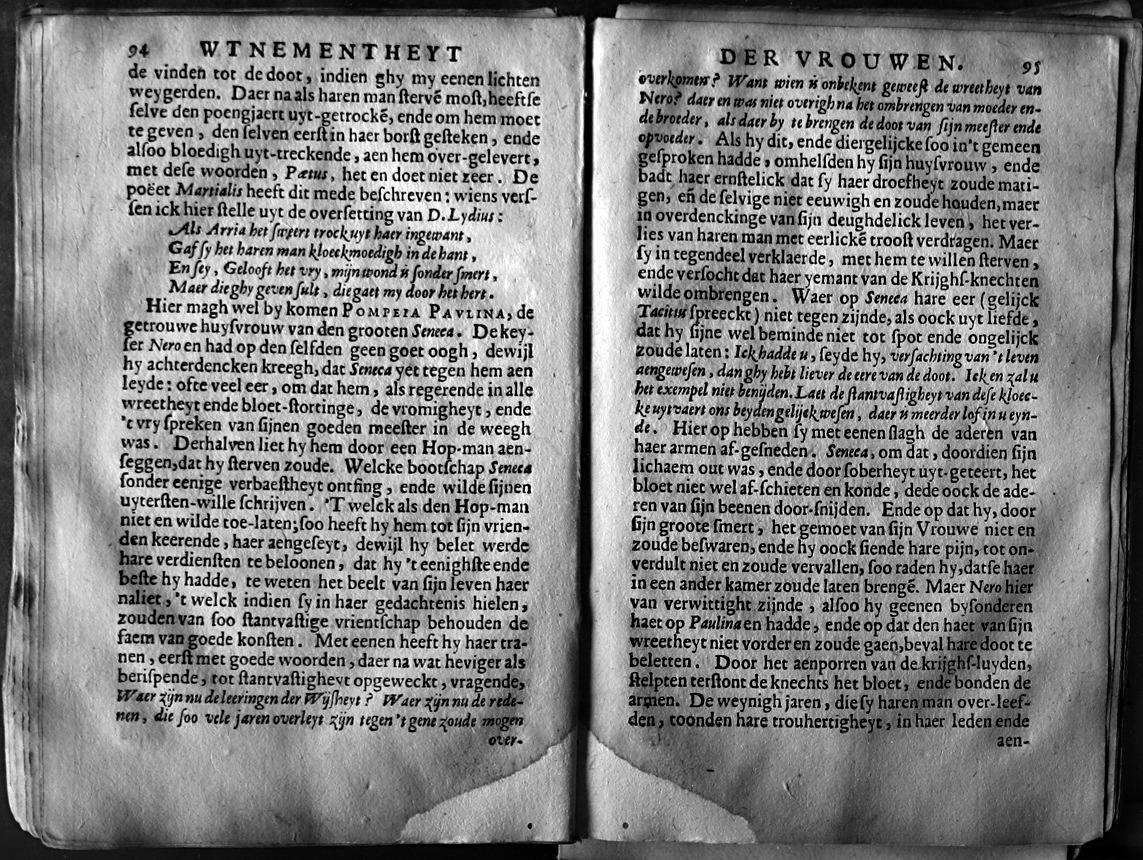 94 WTNEMENTHEYT
de vinden tot de doot, indien ghy my eenen lichten
weygerden. Daer na als haren man ſtervẽ moſt, heeftſe
ſelve den poengjaert uyt-getrockẽ, ende om hem moet
te geven, den ſelven eerſt in haer borſt geſteken, ende
alſoo bloedigh uyt-treckende, aen hem over-gelevert,
met deſe woorden, Pætus, het en doet niet zeer. De
poëet Martialis heeft dit mede beſchreven: wiens verſ-
ſen ick hier ſtelle uyt de overſetting van D. Lydius:
Als Arria het ſweert trock uyt haer ingewant,
Gaf ſy het haren man kloeckmoedigh in de hant,
En ſey, Gelooft het vry, mijn wond is ſonder ſmert,
Maer die ghy geven ſult, die gaet my door het hert.
Hier magh wel by komen POMPEIA PAVLINA, de
getrouwe huyſvrouw van den grooten Seneca. De key-
ſer Nero en had op den ſelfden geen goet oogh, dewijl
hy achterdencken kreegh, dat Seneca yet tegen hem aen
leyde: ofte veel eer, om dat hem, als regerende in alle
wreetheyt ende bloet-ſtortinge, de vromigheyt, ende
't vry ſpreken van ſijnen goeden meeſter in de weegh
was. Derhalven liet hy hem door een Hop-man aen-
ſeggen, dat hy ſterven zoude. Welcke bootſchap Seneca
ſonder eenige verbaeſtheyt ontfing, ende wilde ſijnen
uyterſten-wille ſchrijven. 'T welck als den Hop-man
niet en wilde toe-laten; ſoo heeft hy hem tot ſijn vrien-
den keerende, haer aengeſeyt, dewijl hy belet werde
hare verdienſten te beloonen, dat hy 't eenighſte ende
beſte hy hadde, te weten het beelt van ſijn leven haer
naliet, 't welck indien ſy in haer gedachtenis hielen,
zouden van ſoo ſtantvaſtige vrientſchap behouden de
faem van goede konſten. Met eenen heeft hy haer tra-
nen, eerſt met goede woorden, daer na wat heviger als
beriſpende, tot ſtantvaſtigheyt opgeweckt, vragende,
Waer zijn nu de leeringen der Wijſheyt? Waer zijn nu de rede-
nen, die ſoo vele jaren overleyt zijn tegen 't gene zoude mogen
over-
DER VROUWEN. 95
overkomen? Want wien is onbekent geweeſt de wreetheyt van
Nero? daer en was niet overigh na het ombrengen van moeder en-
de broeder, als daer by te brengen de doot van ſijn meeſter ende
opvoeder. Als hy dit, ende diergelijcke ſoo in't gemeen
geſproken hadde, omhelſden hy ſijn huyſvrouw, ende
badt haer ernſtelick dat ſy haer droefheyt zoude mati-
gen, eñ de ſelvige niet eeuwigh en zoude houden, maer
in overdenckinge van ſijn deughdelick leven, het ver-
lies van haren man met eerlickẽ trooſt verdragen. Maer
ſy in tegendeel verklaerde, met hem te willen ſterven,
ende verſocht dat haer yemant van de Krijghſ-knechten
wilde ombrengen. Waer op Seneca hare eer (gelijck
Tacitus ſpreeckt) niet tegen zijnde, als oock uyt liefde,
dat hy ſijne wel beminde niet tot ſpot ende ongelijck
zoude laten: Ick hadde u, ſeyde hy, verſachting van 't leven
aengeweſen, dan ghy hebt liever de eere van de doot. Ick en zal u
het exempel niet benijden. Laet de ſtantvaſtigheyt van deſe kloec-
ke uytvaert ons beyden gelijck weſen, daer is meerder lof in u eyn-
de. Hier op hebben ſy met eenen ſlagh de aderen van
haer armen af-geſneden. Seneca, om dat, doordien ſijn
lichaem out was, ende door ſoberheyt uyt-geteert, het
bloet niet wel af-ſchieten en konde, dede oock de ade-
ren van ſijn beenen door-ſnijden. Ende op dat hy, door
ſijn groote ſmert, het gemoet van ſijn Vrouwe niet en
zoude beſwaren, ende hy oock ſiende hare pijn, tot on-
verdult niet en zoude vervallen, ſoo raden hy, datſe haer
in een ander kamer zoude laten brengẽ. Maer Nero hier
van verwittight zijnde, alſoo hy geenen byſonderen
haet op Paulina en hadde, ende op dat den haet van ſijn
wreetheyt niet vorder en zoude gaen, beval hare doot te
beletten. Door het aenporren van de krijghſ-luyden,
ſtelpten terſtont de knechts het bloet, ende bonden de
armen. De weynigh jaren, die ſy haren man over-leef-
den, toonden hare trouhertigheyt, in haer leden ende
aen-